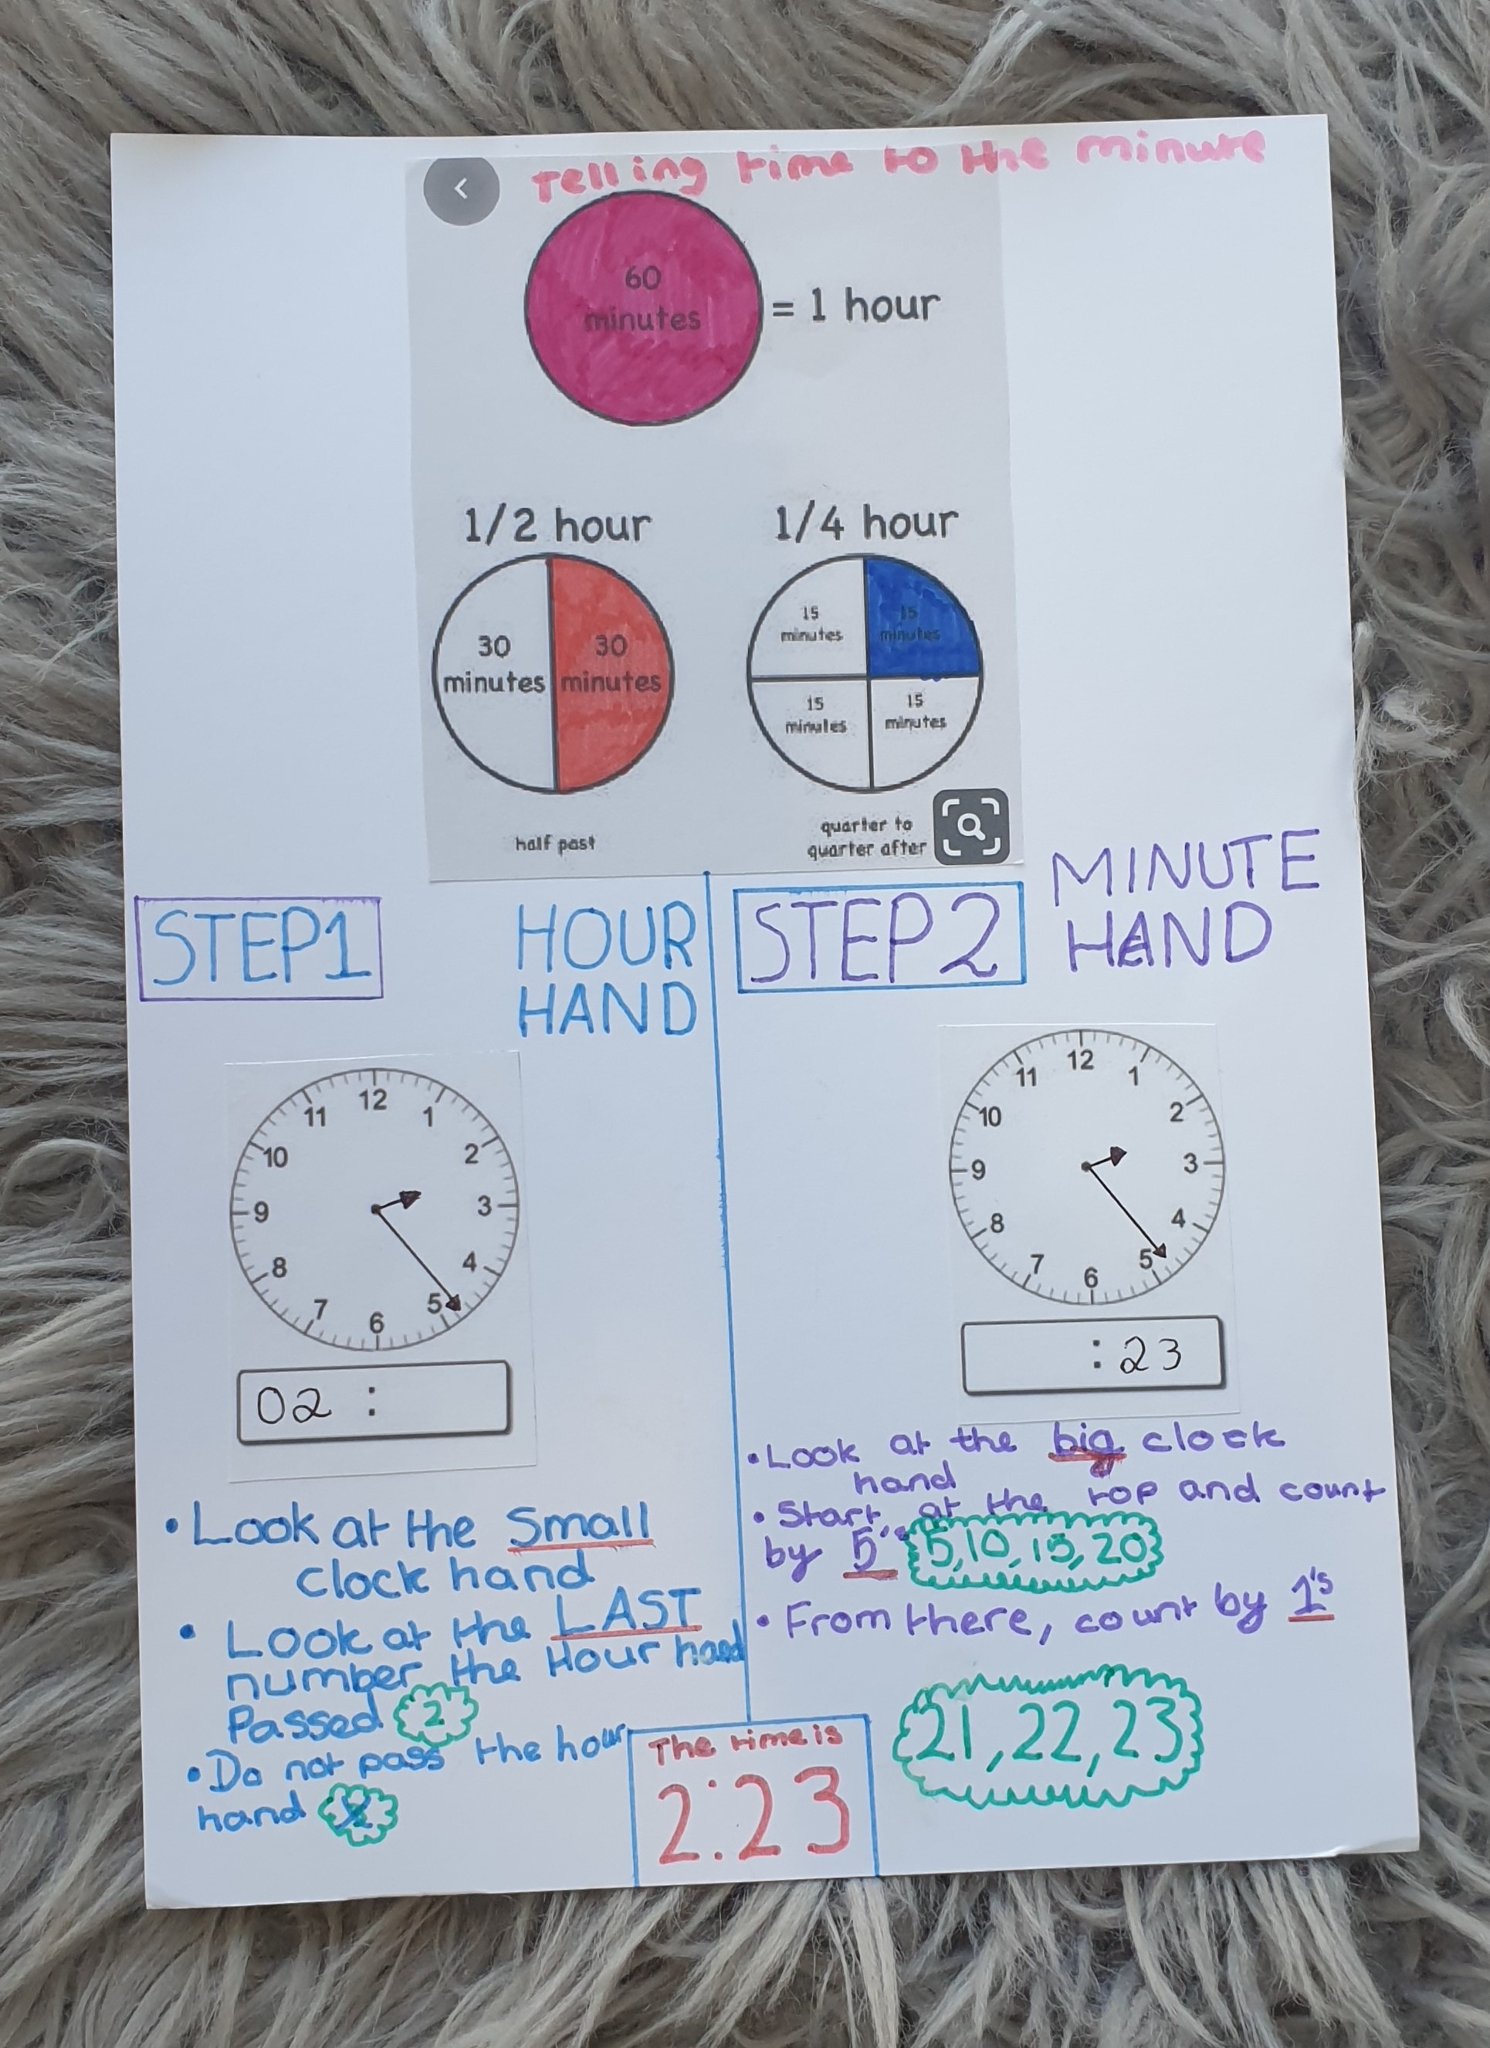 Telling time to the minute
60
minutes
= 1 hour
1/2 hour
1/4 hour
30
minutes
30
minutes
15
minutes
15
minutes
15
minutes
15
minutes
half past
quarter to
quarter after
STEP1
HOUR
HAND
12
1
2
3
4
5
6
7
8
9
10
11
02 :
• Look at the Small
clock hand
• Look at the LAST
number the Hour hand
Passed 2
• Do not pass the hour
hand
STEP 2
MINUTE
HAND
12
1
2
3
4
5
6
7
8
9
10
11
: 23
• Look at the big clock
hand
• Start at the top and count
by 5's 5,10,15,20
• From there, count by 1's
21,22,23
The time is
2:23